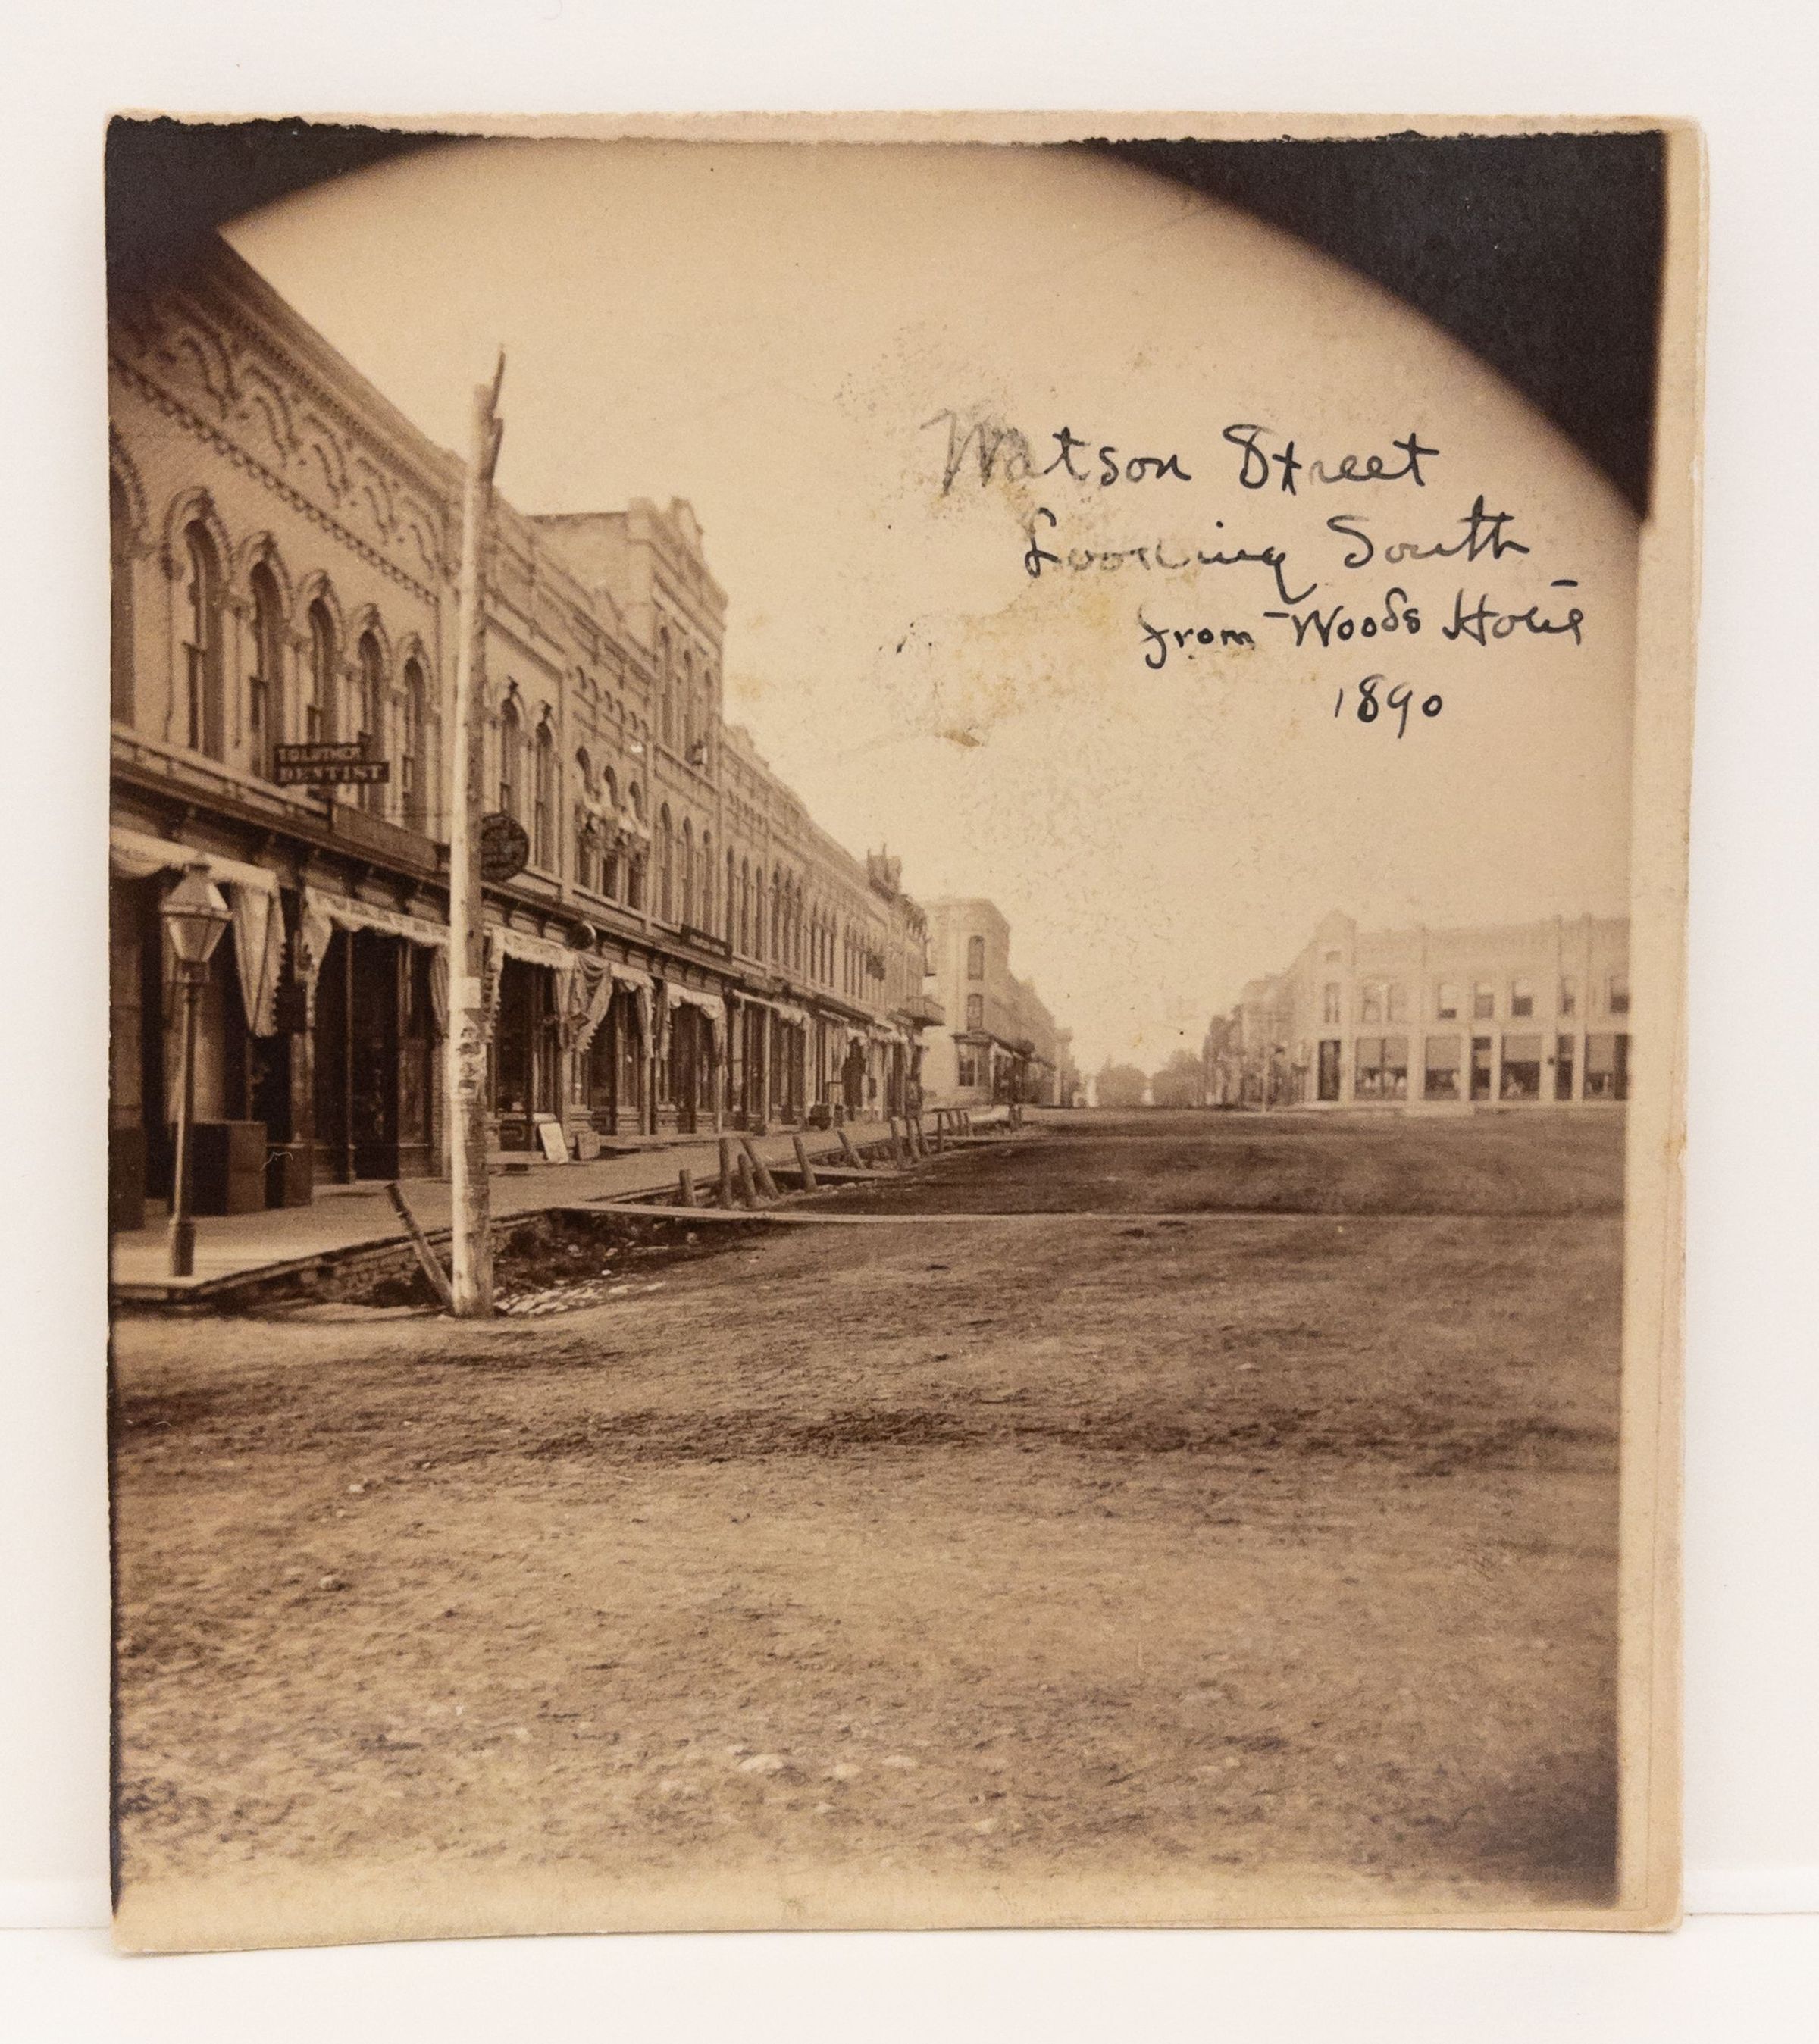 Watson Street
Looking South
from Woods Hotel
1890
DENTIST